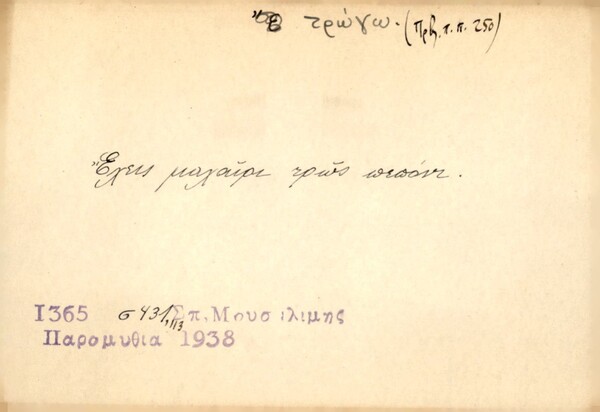 τρώγω. (Πρβ. τ. π. 250)
Ἔχεις μαχαῖρι τρῶς πεπόνι.
1365 σ 431, 113 Σπ. Μουσελιμης
Παρομυθια 1938